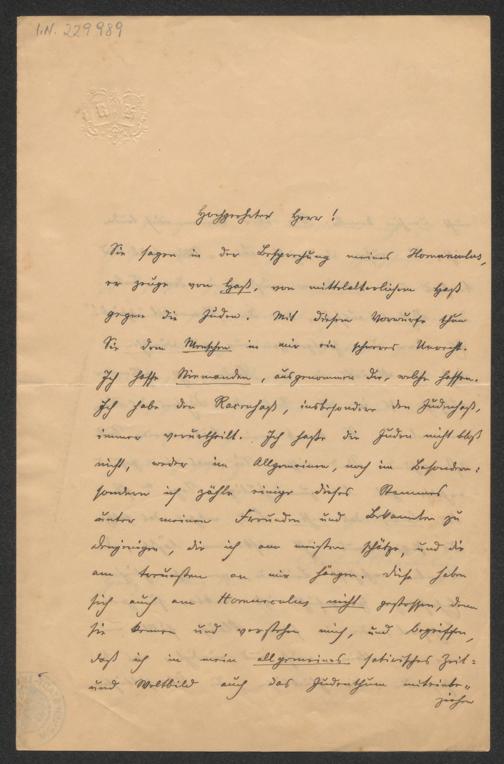 I.N. 229989
Hochgeehrter Herr!
Sie sagen in der Besprechung meines Homunculus,
er zeuge von Haß, von mittelalterlichem Haß
gegen die Juden. Mit diesem Vorwurfe thun
Sie dem Menschen in mir ein schweres Unrecht.
Ich hasse Niemanden, ausgenommen die, welche hassen.
Ich habe den Racenhaß, insbesondere den Judenhaß,
immer verurtheilt. Ich hasse die Juden nicht bloß
nicht, weder im Allgemeinen, noch im Besondern:
sondern ich zähle einige dieses Stammes
unter meinen Freunden und Bekannten zu
denjenigen, die ich am meisten schätze, und die
am treuesten an mir hängen. Diese haben
sich auch am Homunculus nicht gestossen, denn
sie kennen und verstehen mich, und begriffen,
daß ich in mein allgemeines satirisches Zeit-
und Weltbild auch das Judenthum miteinbe-
ziehen